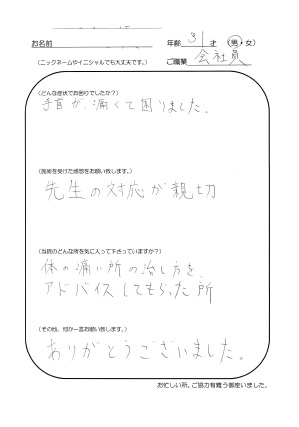 お名前
年齢 31 才 (男・女)
(ニックネームやイニシャルでも大丈夫です。)
ご職業 会社員
(どんな症状でお困りでしたか?)
手首が、痛くて困りました。
(施術を受けた感想をお願い致します。)
先生の対応が親切
(当院のどんな所を気に入って下さっていますか?)
体の痛い所の治し方を、
アドバイスしてもらった所
(その他、何か一言お願い致します。)
ありがとうございました。
お忙しい所、ご協力有難う御座いました。